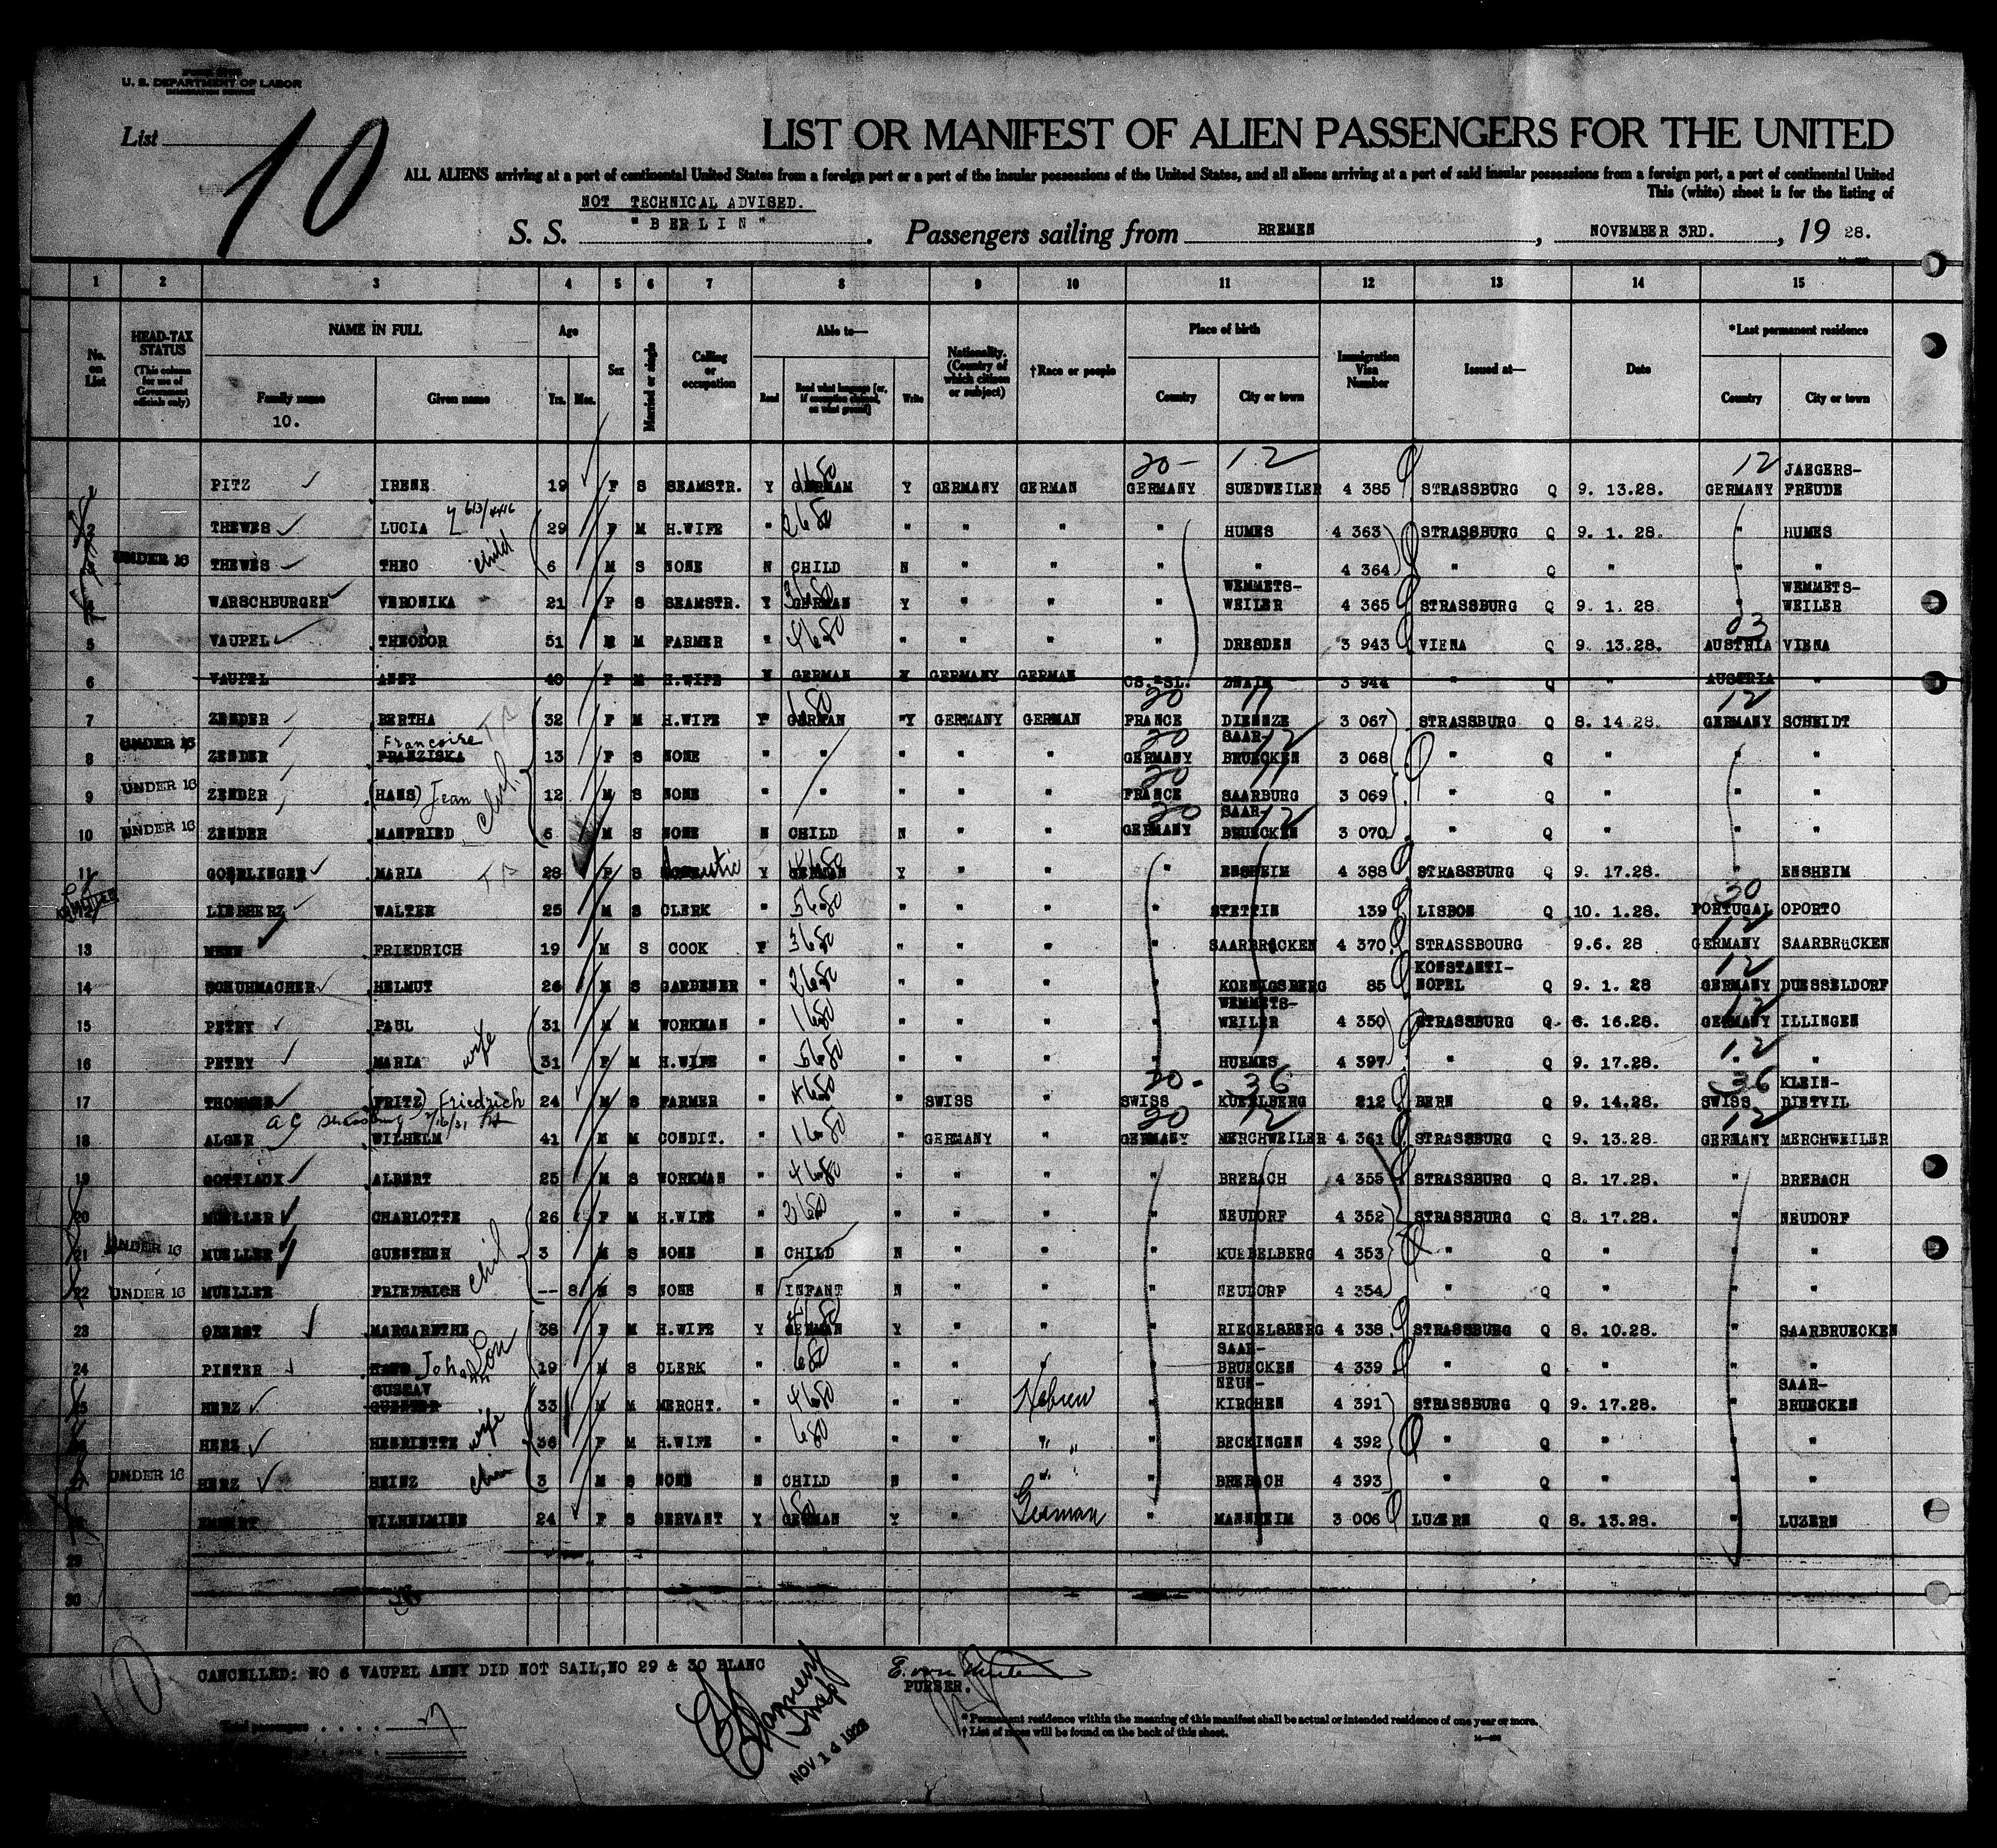 U. S. DEPARTMENT OF LABOR
IMMIGRATION SERVICE
List 10
LIST OR MANIFEST OF ALIEN PASSENGERS FOR THE UNITED
ALL ALIENS arriving at a port of continental United States from a foreign port or a port of the insular possessions of the United States, and all aliens arriving at a port of said insular possessions from a foreign port, a port of continental United
This (white) sheet is for the listing of
NOT TECHNICAL ADVISED.
S. S. "BERLIN". Passengers sailing from BREMEN, NOVEMBER 3RD., 19 28.
1 2 3 4 5 6 7 8 9 10 11 12 13 14 15
No. on List
HEAD-TAX STATUS (This column for use of Government officials only)
NAME IN FULL Family name Given name
10.
Age Yrs. Mos.
Sex
Married or single
Calling or occupation
Able to— Read Read what language (or, if exemption claimed, on what ground) Write
Nationality. (Country of which citizen or subject)
†Race or people
Place of birth Country City or town
Immigration Visa Number
Issued at—
Date
*Last permanent residence Country City or town
1 PITZ IRENE 19 F S SEAMSTR. Y GERMAN Y GERMANY GERMAN GERMANY SUEDWEILER 4 385 STRASSBURG Q 9. 13.28. GERMANY JAEGERS-FREUDE
2 THEWES LUCIA 29 F M H.WIFE " " " " " HUMES 4 363 STRASSBURG Q 9. 1. 28. " HUMES
3 UNDER 16 THEWES THEO child 6 M S NONE N CHILD N " " " " 4 364 " Q " " "
4 WARSCHBURGER VERONIKA 21 F S SEAMSTR. Y GERMAN Y " " " WEMMETS-WEILER 4 365 STRASSBURG Q 9. 1. 28 " WEMMETS-WEILER
5 VAUPEL THEODOR 51 M M FARMER " " " " " DRESDEN 3 943 VIENA Q 9. 13.28. AUSTRIA VIENA
6 VAUPEL ANNY 40 F M H.WIFE Y GERMAN Y GERMANY GERMAN CS.-SL. ZNAIM 3 944 " Q " AUSTRIA
7 ZENDER BERTHA 32 F M H.WIFE Y GERMAN "Y GERMANY GERMAN FRANCE DIENNZE 3 067 STRASSBURG Q 8. 14.28. GERMANY SCHEIDT
8 UNDER 16 ZENDER FRANZISKA Francoise 13 F S NONE " " " " " GERMANY SAAR-BRUECKEN 3 068 " Q " " "
9 UNDER 16 ZENDER (HANS) Jean 12 M S NONE " " " " " FRANCE SAARBURG 3 069 " Q " " "
10 UNDER 16 ZENDER MANFRIED 6 M S NONE N CHILD N " " GERMANY SAAR-BRUECKEN 3 070 " Q " " "
11 GOERLINGER MARIA 28 F S domestic Y GERMAN Y " " " ENSHEIM 4 388 STRASSBURG Q 9. 17.28. " ENSHEIM
12 LIEBHERZ WALTER 25 M S CLERK " " " " " STETTIN 139 LISBON Q 10. 1.28. PORTUGAL OPORTO
13 FRIEDRICH 19 M S COOK " " " " SAARBRüCKEN 4 370 STRASSBOURG 9.6. 28 GERMANY SAARBRüCKEN
14 SCHUHMACHER HELMUT 26 M S GARDENER " " " " " KOENIGSBERG 85 KONSTANTI-NOPEL Q 9. 1. 28 GERMANY DUESSELDORF
15 PETRY PAUL 31 M M WORKMAN " " " " " WEMMETS-WEILER 4 350 STRASSBURG Q 8. 16.28. GERMANY ILLINGEN
16 PETRY MARIA wife 31 F M H.WIFE " " " " " HUEMES 4 397 " Q 9. 17.28. " "
17 (FRITZ) Friedrich 24 M S FARMER " " SWISS " SWISS KUEELBERG 212 BERN Q 9. 14.28. SWISS KLEIN-DIETVIL
18 ALGER WILHELM 41 M M CONDIT. " " GERMANY " GERMANY MERCHWEILER 4 361 STRASSBURG Q 9. 13.28. GERMANY MERCHWEILER
19 GOTTLADY ALBERT 25 M S WORKMAN " " " " " BREBACH 4 355 STRASSBURG Q 8. 17.28. " BREBACH
20 MUELLER CHARLOTTE 26 F M H.WIFE " " " " " NEUDORF 4 352 STRASSBURG Q 8. 17.28. " NEUDORF
21 UNDER 16 MUELLER GUENTHER 3 M S NONE N CHILD N " " " KUEBELBERG 4 353 " Q " " "
22 UNDER 16 MUELLER FRIEDRICH -- 8 M S NONE N INFANT N " " " NEUDORF 4 354 " Q " " "
23 OBERST MARGARETHE 38 F M H.WIFE Y GERMAN Y " " " RIEGELSBERG 4 338 STRASSBURG Q 8. 10.28. " SAARBRUECKEN
24 PINTER HANS Johann Son 19 M S CLERK " " " " " SAAR-BRUECKEN 4 339 " Q " " "
25 HERZ GUSTAV GUENTER 33 M M MERCHT. " " " Hebrew " NEUN-KIRCHEN 4 391 STRASSBURG Q 9. 17.28. " SAAR-BRUECKEN
26 HERZ HENRIETTE wife 36 F M H.WIFE " " " " " BECKINGEN 4 392 " Q " " "
27 UNDER 16 HERZ HEINZ 3 M S NONE N CHILD N " " " BREBACH 4 393 " Q " " "
28 WILHELMINE 24 F S SERVANT Y GERMAN Y " German " MANNHEIM 3 006 LUZERN Q 8. 13.28. " LUZERN
29
30
CANCELLED: NO 6 VAUPEL ANNY DID NOT SAIL, NO 29 & 30 BLANC
PURSER.
Total passengers
NOV 14 1928
* Permanent residence within the meaning of this manifest shall be actual or intended residence of one year or more.
† List of races will be found on the back of this sheet.